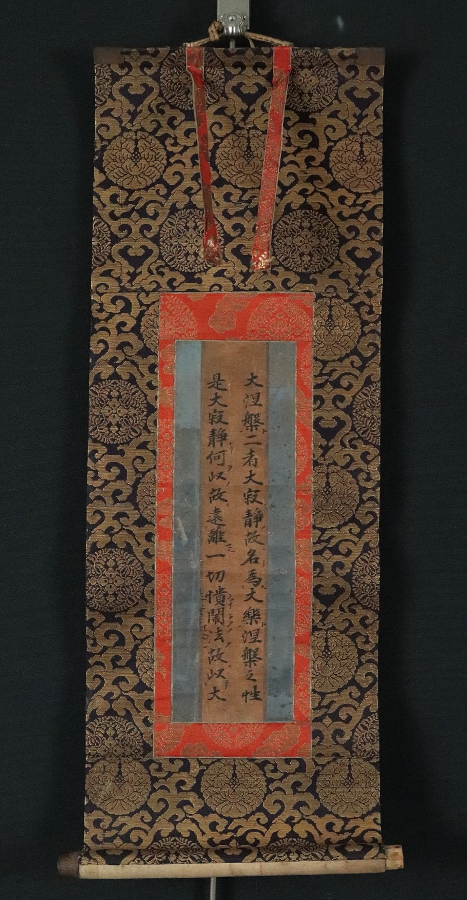 大涅槃二者大寂静故名為大樂涅槃之性
是大寂静何以故遠離一切憒閙法故以大